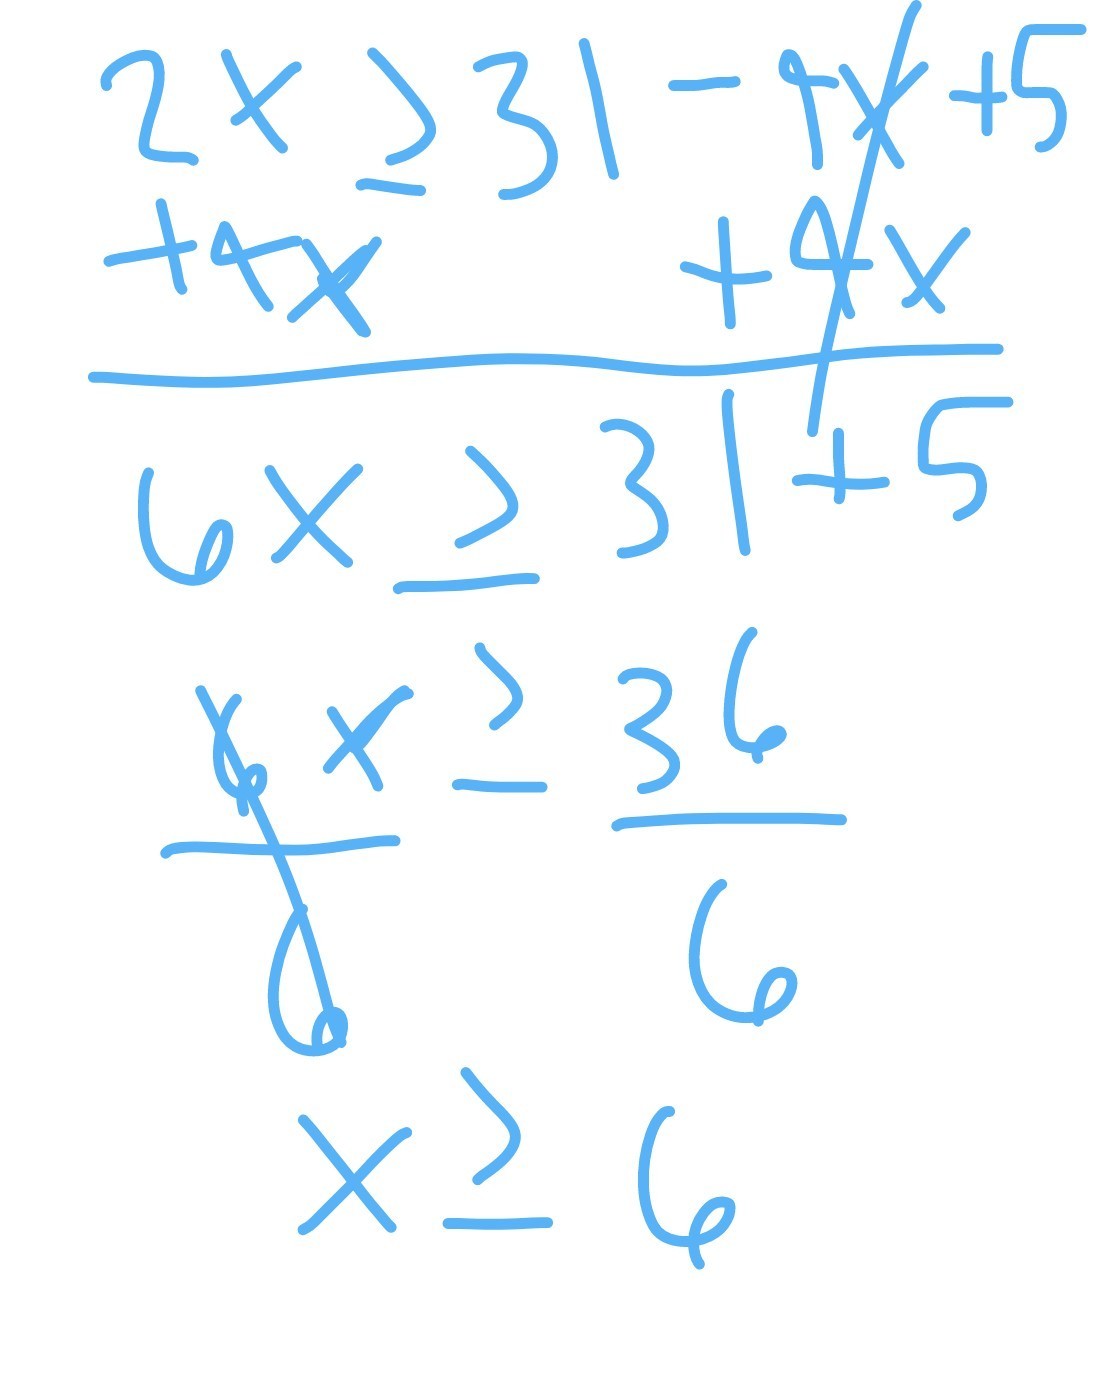 2x ≥ 31 - 4x + 5
+4x +4x
6x ≥ 31 + 5
6x ≥ 36
6 6
x ≥ 6